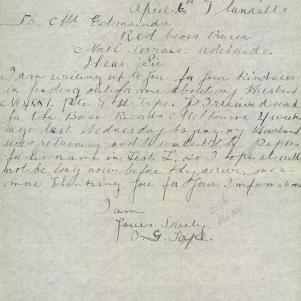 April 6th
To Mr Edmunds.
Red Cross Bureau
North Terrace Adelaide.
Dear Sir
I am writing up to you for your kindness
in finding out for me about my Husband
No 4881. Pte. J H Tape.
for the Base Records Melbourne 4 weeks
ago last Wednesday saying my Husband
was returning and to watch the Papers
for his name in List I. So I hope it will
not be long now before they arrive, once
more thanking you for your Information
I am
Yours Truly.
Tape.